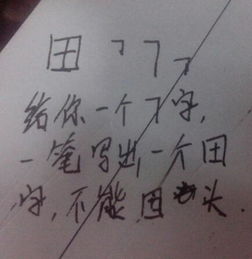 田 ㄱ ㄱ ㄱ
给你一个ㄱ字,
一笔写出一个田
字,不能回头.